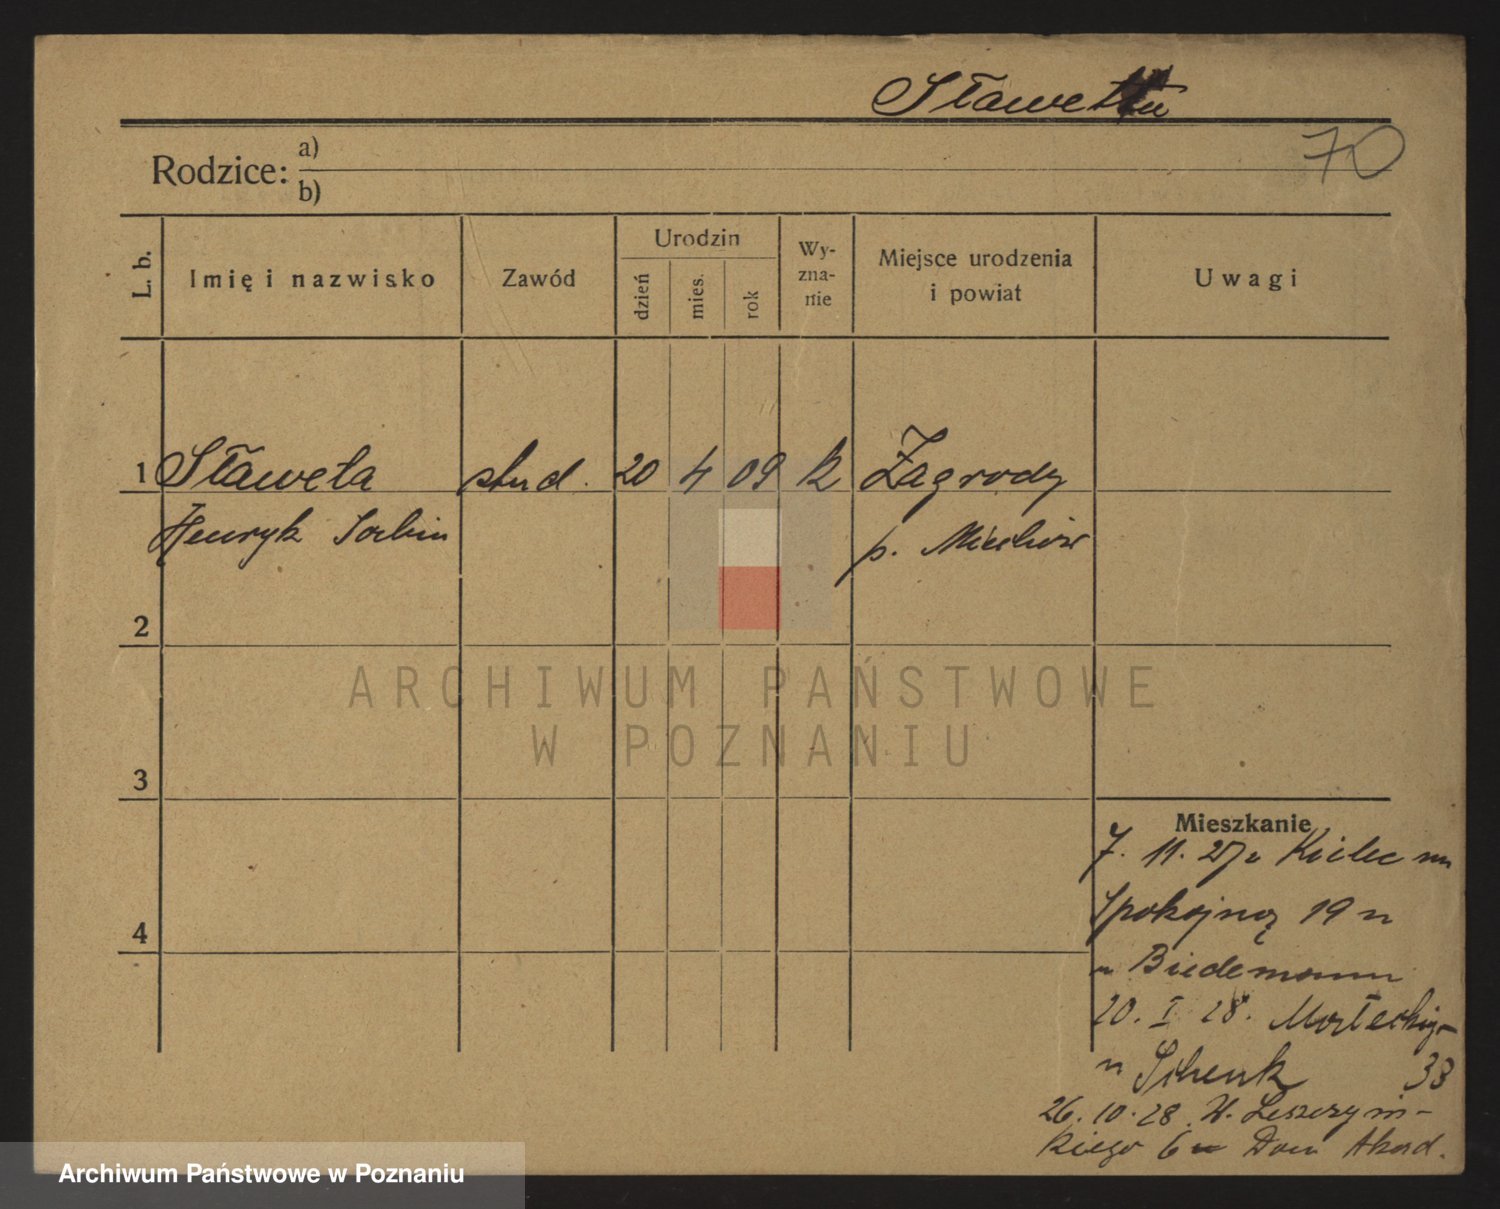 70
Rodzice: a)
b)
L. b. Imię i nazwisko Zawód Urodzin dzień mies. rok Wy-
zna-
nie Miejsce urodzenia
i powiat Uwagi
1 Sławeta stud. 20 4 09 k Zagrody
Henryk Sabin p. Miechów
2
ARCHIWUM PAŃSTWOWE
W POZNANIU
3
Mieszkanie
7. 11. 27 z Kielc
Spokojną 19
Biedemann
20. I 28.
u Schenk 33
4
26. 10. 28. W. Leszczyńs-
kiego 6 Dom Akad.
Archiwum Państwowe w Poznaniu